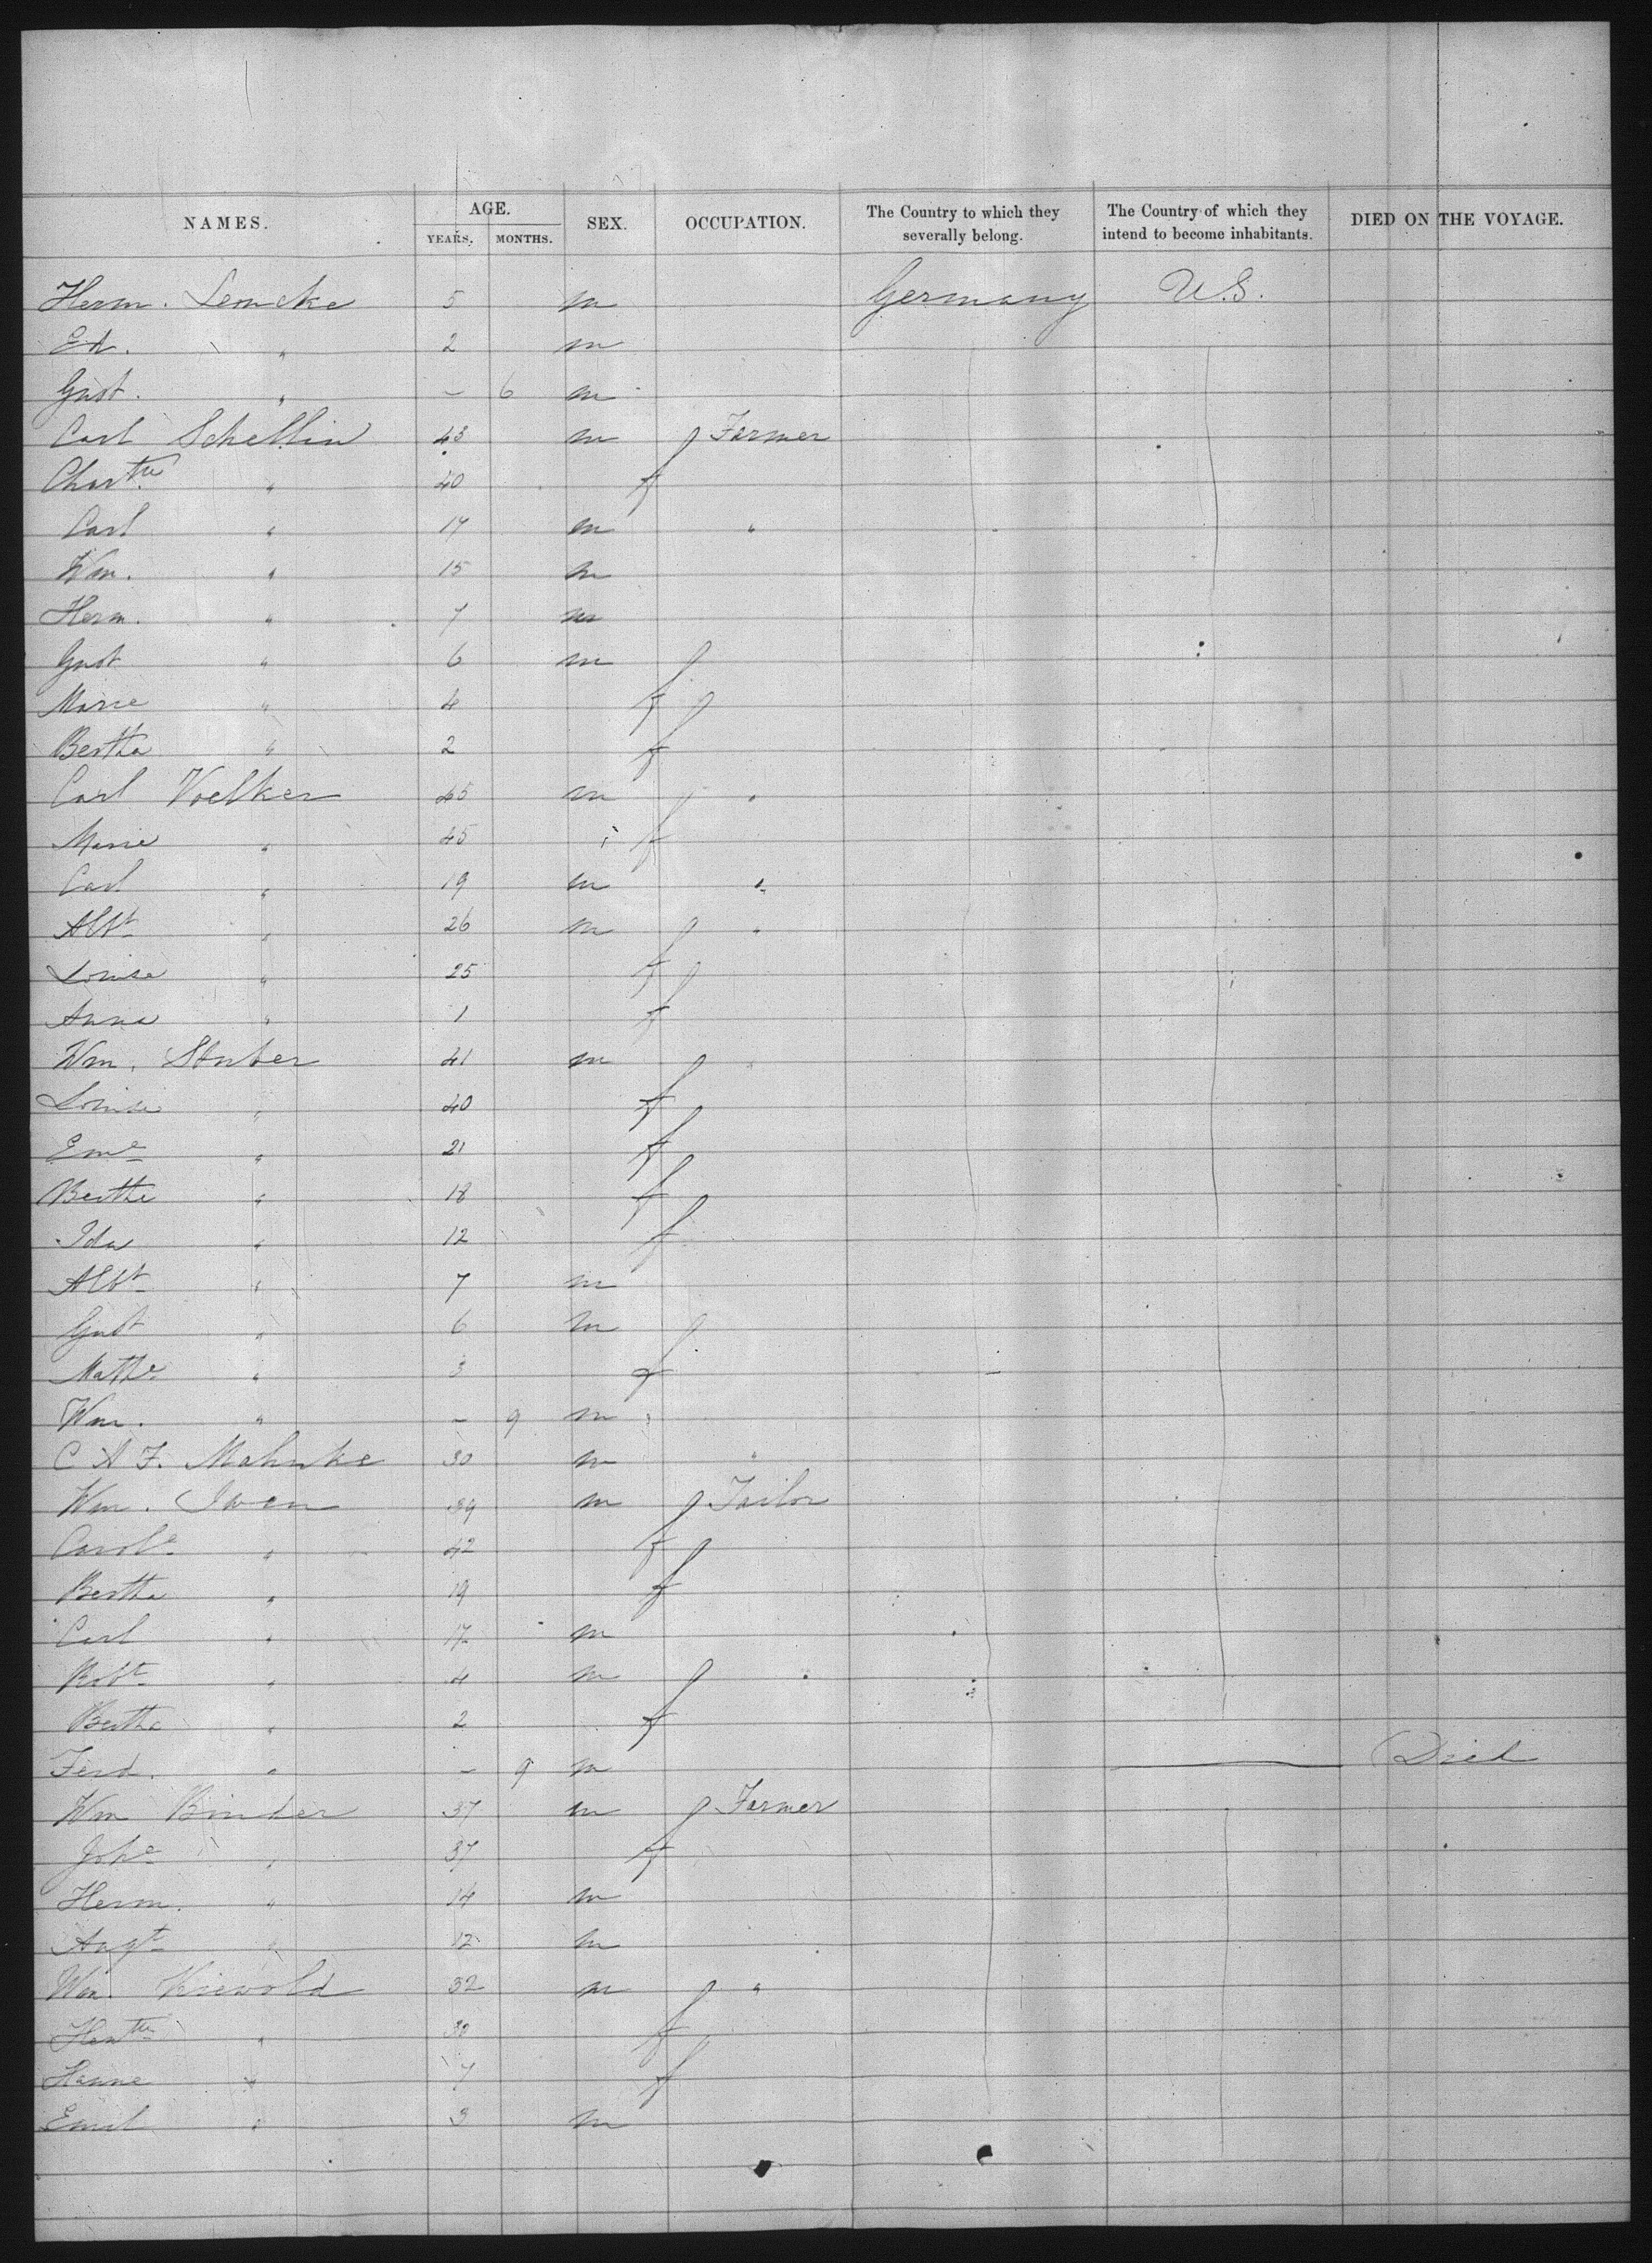 NAMES. AGE. SEX. OCCUPATION. The Country to which they severally belong. The Country of which they intend to become inhabitants. DIED ON THE VOYAGE.
YEARS. MONTHS.
Herm. Lemcke 5 m Germany U.S.
Ed. " 2 m
Gust. " – 6 m
Carl Schellin 43 m Farmer
Chartte " 40 f
Carl " 17 m "
Wm. " 15 m
Herm. " 7 m
Gust " 6 m
Marie " 4 f
Bertha " 2 f
Carl Voelker 45 m "
Marie " 45 f
Carl " 19 m "
Albt " 26 m "
Louise " 25 f
Anna " 1 f
Wm. Stuber 41 m "
Louise " 40 f
Eme " 21 f
Berthe " 18 f
Ida " 12 f
Albt " 7 m
Gust " 6 m
Mathe " 3 f
Wm. " – 9 m
C A F. Mahnke 30 m "
Wm. Iwen 39 m Tailor
Carole " 42 f
Bertha " 19 f
Carl " 17 m
Robt " 4 m
Bertha " 2 f
Ferd. " – 9 m Died
Wm Binder 37 m Farmer
Johe " 37 f
Herm. " 14 m
Augt " 12 m
Wm. Kiewold 32 m "
Hentte " 30 f
Hanne " 7 f
Emil " 3 m